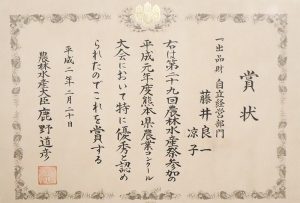 賞状
一出品財 自立経営部門
藤井良一
凉子
右は第二十九回農林水産祭参加の
平成元年度熊本県農業コンクール
大会において特に優秀と認め
られたのでこれを賞する
平成二年二月二十日
農林水産大臣 鹿野道彦